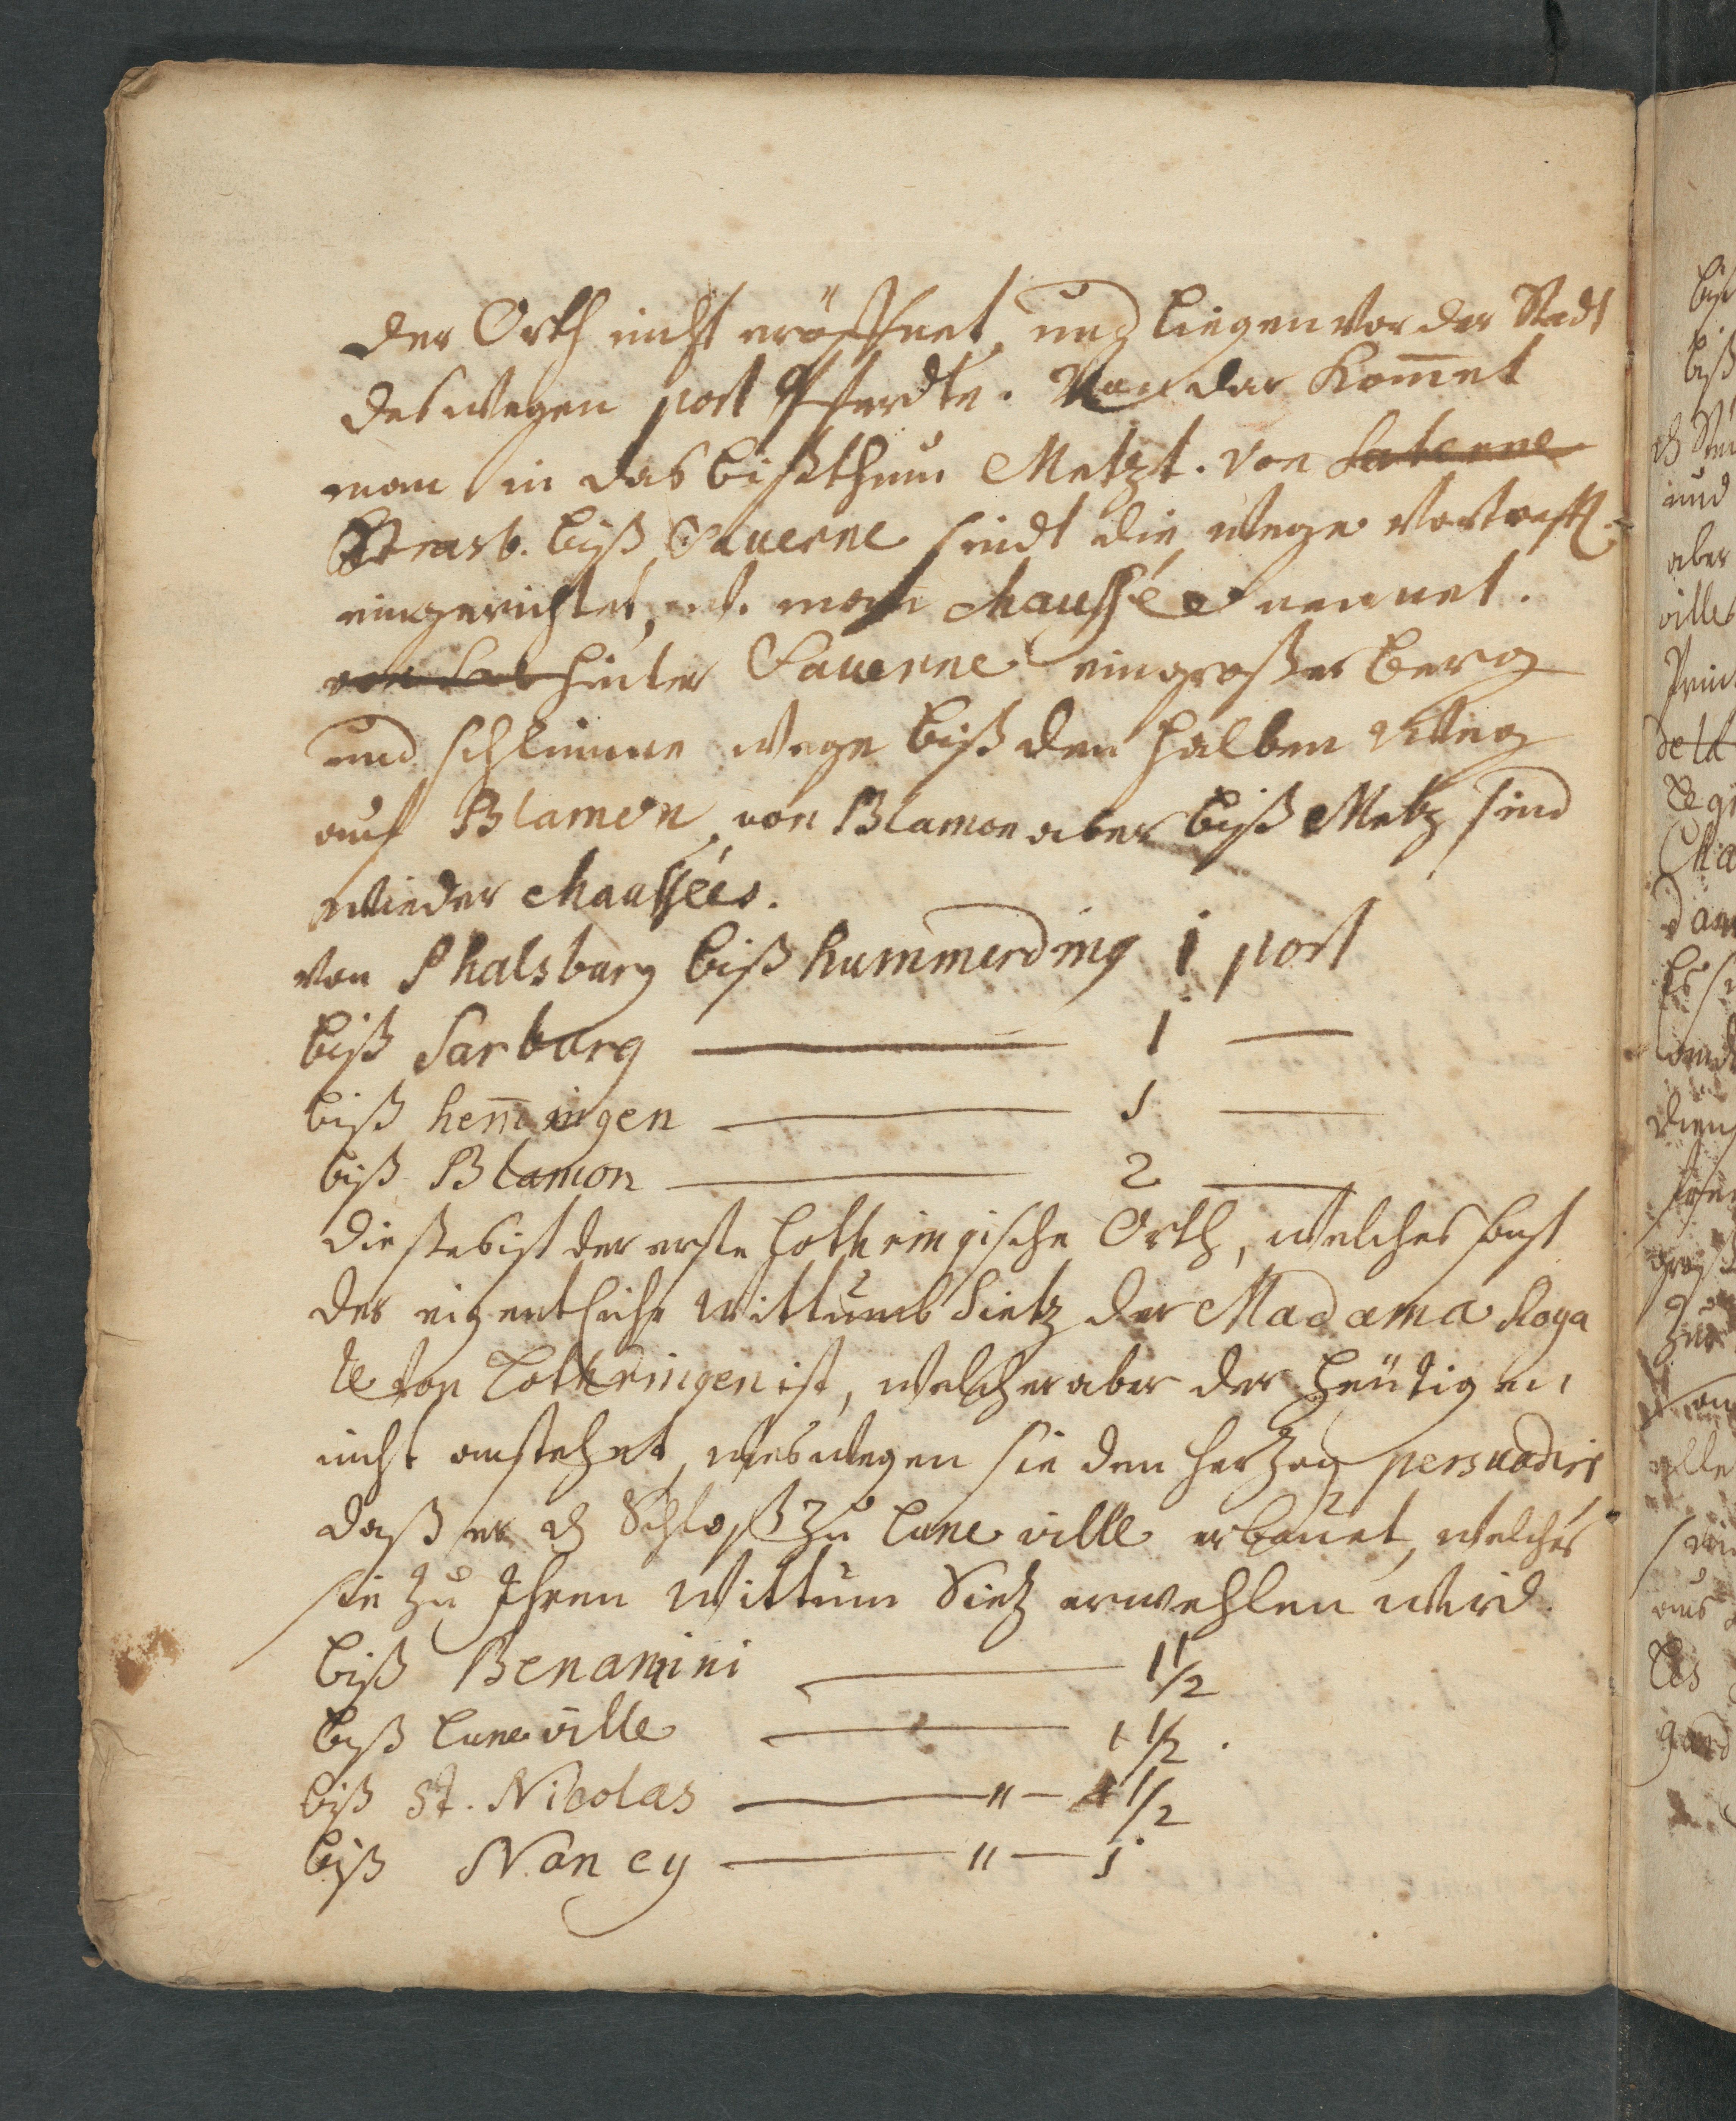 der Orth nicht eröffnet, und liegen vor der Stadt
deswegen post Pferdte. Von dar kom̄et
man in das bißthum Metzt. von Saterne
Strasb. biß Saverne sindt die wege vortreffl.
eingerichtet, w. man chaussée nennet.
von Sab hinter Saverne ein großer berg
und schlimme wege biß den halben Weg
auf Blamon, von Blamon aber biß Metz sind
wieder chaussées.
von Phalsburg biß hummerding 1 post
biß Sarburg — 1 —
biß hem̄ingen — 1 —
biß Blamon — 2 —
dieses ist der erste Lothringische Orth, welches sonst
der eigentliche Wittumb Sietz der Madama Roya
le von Lothringen ist, welcher aber der heütigen,
nicht anstehet, weswegen sie den Herzog persuadirt
daß er d Schloß zu Lune ville erbauet, welches
sie zu Ihren Wittum Sietz erwehlen wird.
biß Benamini — 1 1/2
biß Luneville — 1 1/2.
biß St. Nicolas — " — 1 1/2
biß Nancy — " — 1
biß
biß
und
aber
ville
Prin
de la